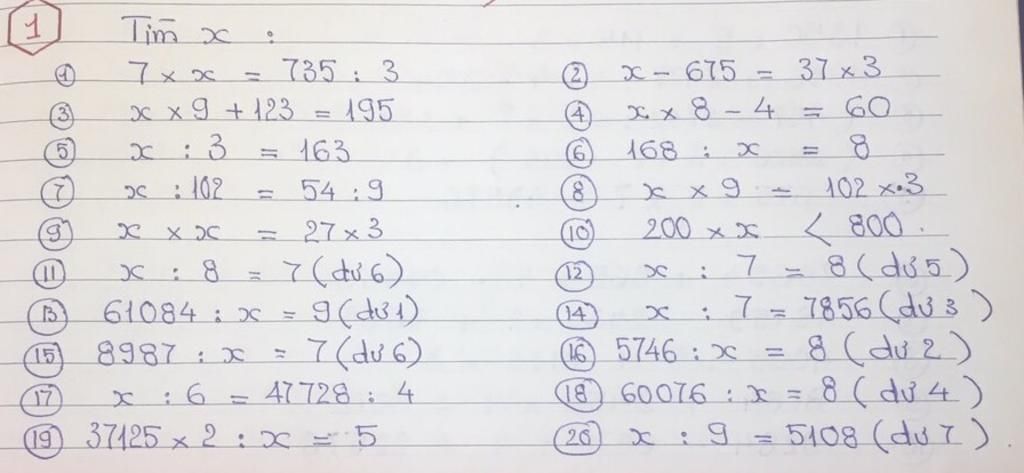 1 Tìm x :
1 7 × x = 735 : 3 2 x - 675 = 37 × 3
3 x × 9 + 123 = 195 4 x × 8 - 4 = 60
5 x : 3 = 163 6 168 : x = 8
7 x : 102 = 54 : 9 8 x × 9 = 102 × 3
9 x × x = 27 × 3 10 200 × x < 800
11 x : 8 = 7 (dư 6) 12 x : 7 = 8 (dư 5)
13 61084 : x = 9 (dư 1) 14 x : 7 = 7856 (dư 3)
15 8987 : x = 7 (dư 6) 16 5746 : x = 8 (dư 2)
17 x : 6 = 47728 : 4 18 60076 : x = 8 (dư 4)
19 37125 × 2 : x = 5 20 x : 9 = 5108 (dư 7)